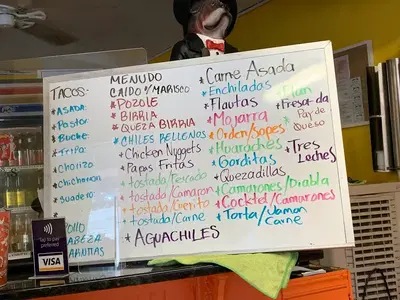 TACOS:
*ASADA
*Pastor
*Buche
*Tripa
*Chorizo
*Chicharron
*Suadero
POLLO
CABEZA
CARNITAS
MENUDO
CALDO %MARISCO
*POZOLE
*BIRRIA
*QUEZA BIRRIA
*CHILES RELLENOS
*Chicken Nuggets
*Papas Fritas
*Tostada/Pescado
*Tostada/Camaron
*Tostada/Cuerito
*Tostada/Carne
*AGUACHILES
*Carne Asada
*Enchiladas
*Flautas
*Mojarra
*Orden/Sopes
*Huaraches
*Gorditas
*Quezadillas
*Camarones/Diabla
*Cocktel/Camarones
*Torta/Jamon
Carne
*Flan
*Fresa-da
*Pay de
Queso
*Tres
Leches
tap to pay
preferred
VISA